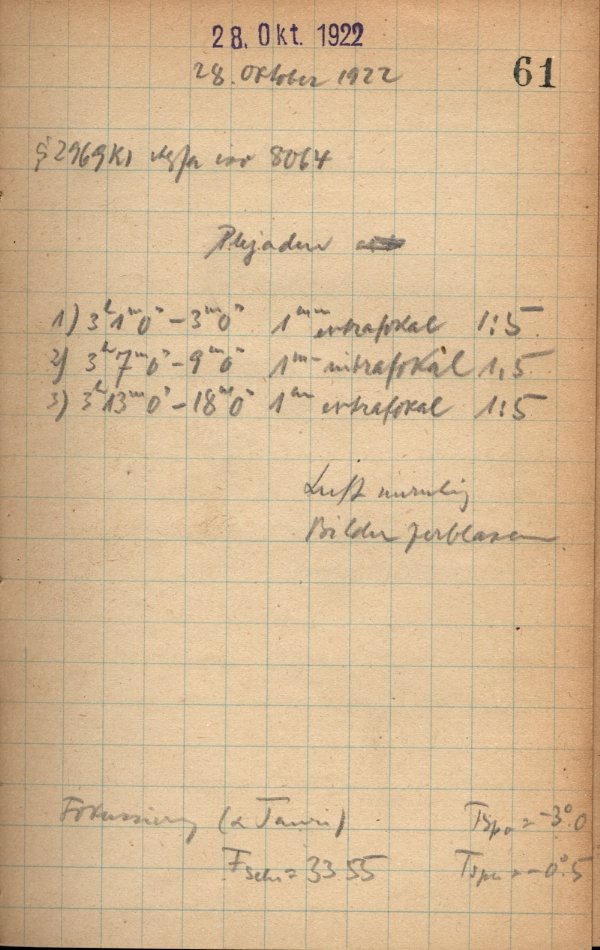 28. Okt. 1922
28. Oktober 1922
61
2969 Agfa 8064
Plejaden
1) 3h 1m 0s – 3m 0s 1mm extrafokal 1:5
2) 3h 7m 0s – 9m 0s 1mm intrafokal 1,5
3) 3h 13m 0s – 18m 0s 1mm extrafokal 1:5
Luft unruhig
Bilder zerblasen
Fokussierung (α Tauri) = -3°.0
= 33.55 = -0°.5